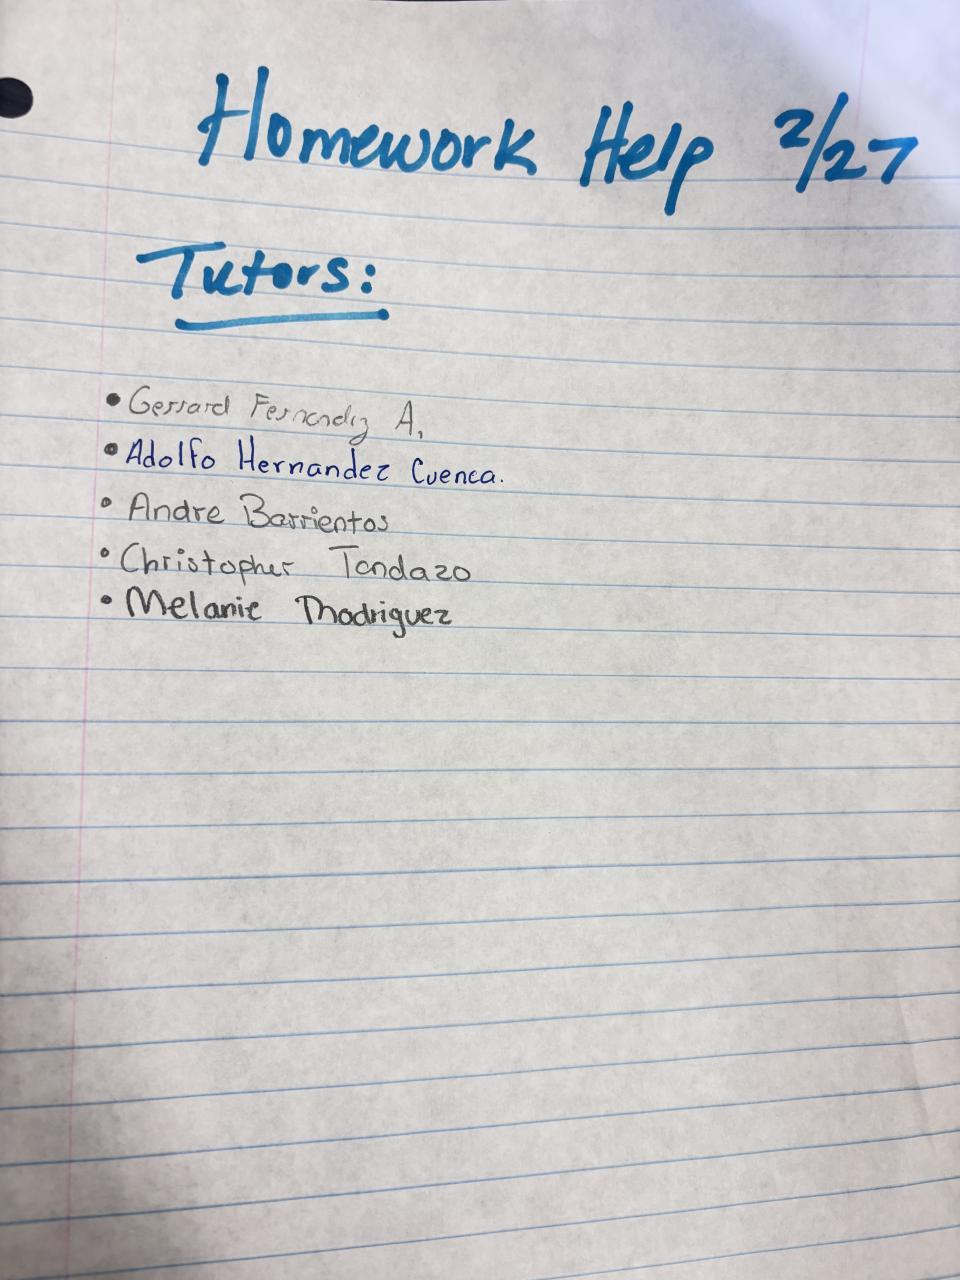 Homework Help 2/27
Tutors:
• Gerrard Fernandez A.
• Adolfo Hernandez Cuenca.
• Andre Barrientos
• Christopher Tandazo
• Melanie Rhodriguez